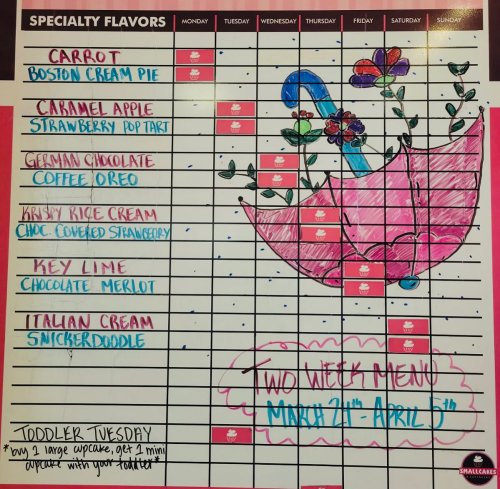 SPECIALTY FLAVORS MONDAY TUESDAY WEDNESDAY THURSDAY FRIDAY SATURDAY SUNDAY
CARROT
BOSTON CREAM PIE
CARAMEL APPLE
STRAWBERRY POP TART
GERMAN CHOCOLATE
COFFEE OREO
KRISPY RICE CREAM
CHOC. COVERED STRAWBERRY
KEY LIME
CHOCOLATE MERLOT
ITALIAN CREAM
SNICKERDOODLE
TWO WEEK MENU
MARCH 24th - APRIL 5th
TODDLER TUESDAY
*buy 1 large cupcake, get 1 mini
cupcake with your toddler*
SMALLCAKES